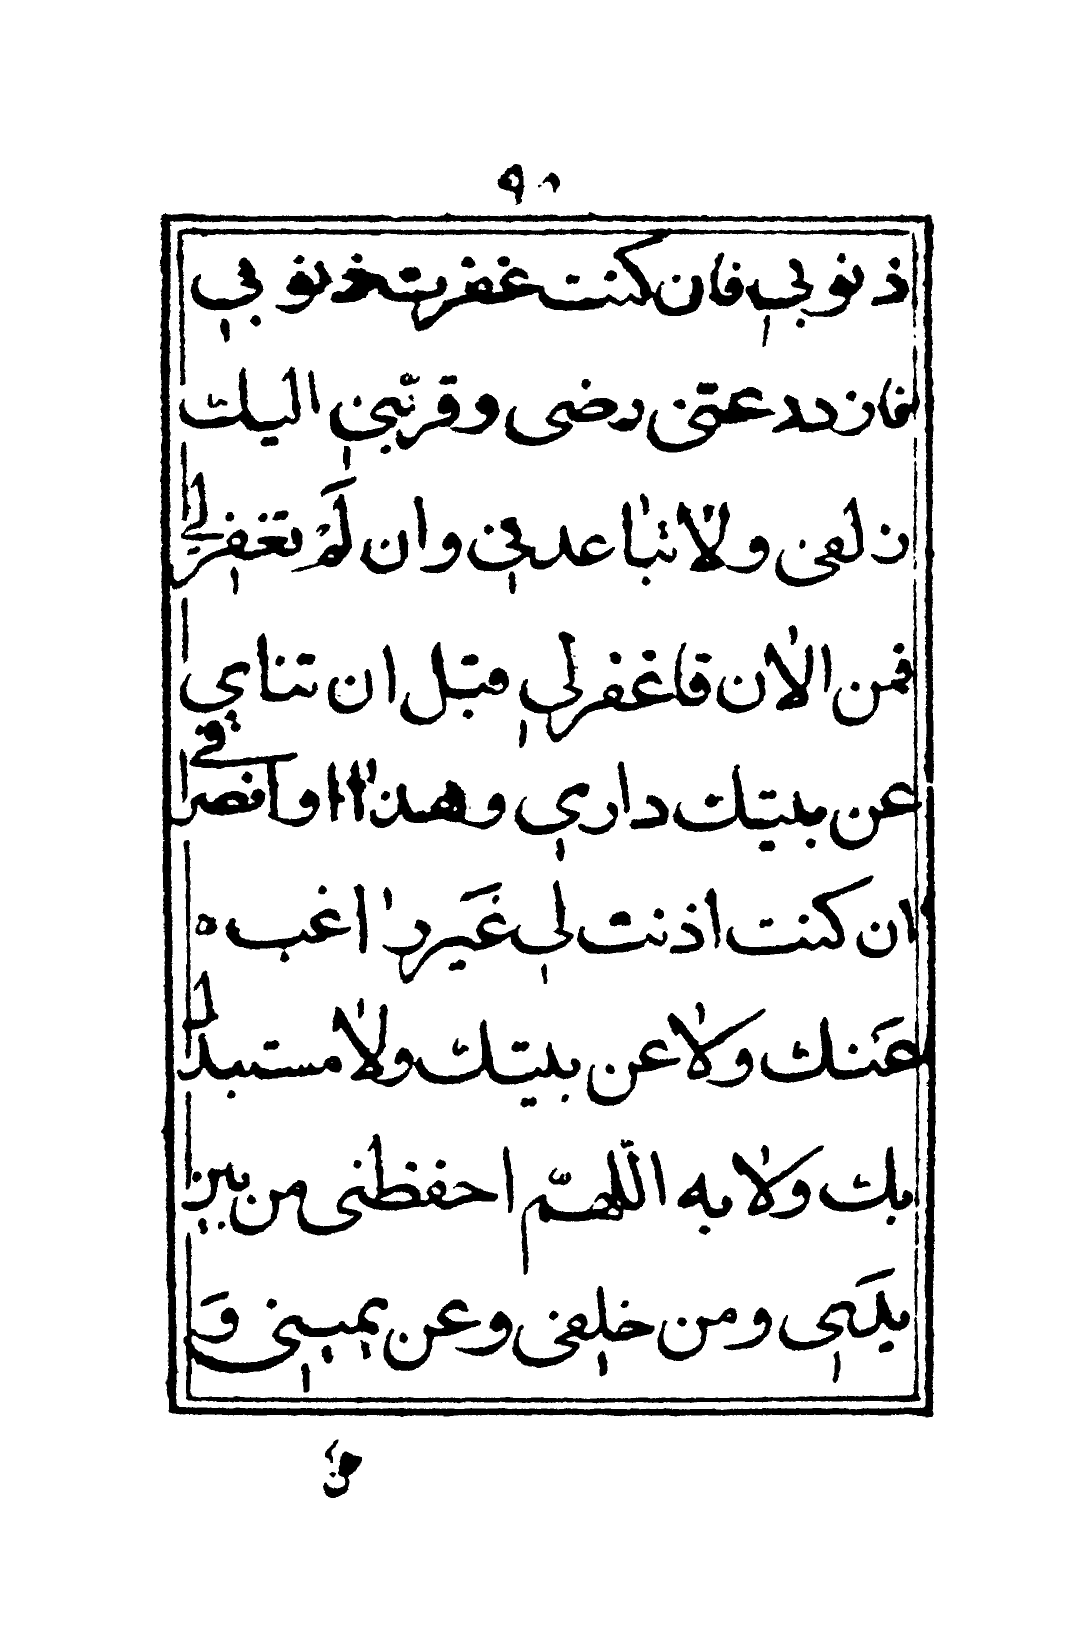 ٩٠
ذنوبي فان كنت غفرت ذنوبي
فازدد عني رضى وقربني اليك
زلفى ولا تباعدني وان لم تغفر لي
فمن الان فاغفر لي قبل ان تناي
عن بيتك داري وهذا اوانصرافي
ان كنت اذنت لي غير راغب ه
عنك ولا عن بيتك ولا مستبدل
بك ولا به اللهم احفظني من بين
يدي ومن خلفي وعن يميني و